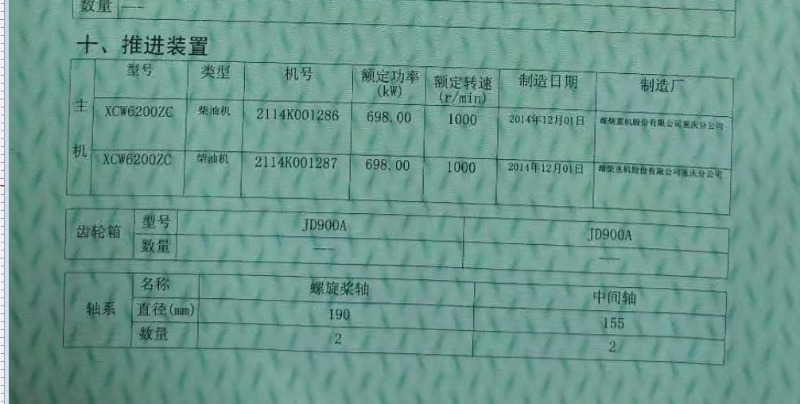 数量 ——
十、推进装置
型号 类型 机号 额定功率(kW) 额定转速(r/min) 制造日期 制造厂
主机
XCW6200ZC 柴油机 2114K001286 698.00 1000 2014年12月01日 潍柴重机股份有限公司重庆分公司
XCW6200ZC 柴油机 2114K001287 698.00 1000 2014年12月01日 潍柴重机股份有限公司重庆分公司
齿轮箱 型号 JD900A JD900A
数量 —— ——
轴系 名称 螺旋桨轴 中间轴
直径(mm) 190 155
数量 2 2